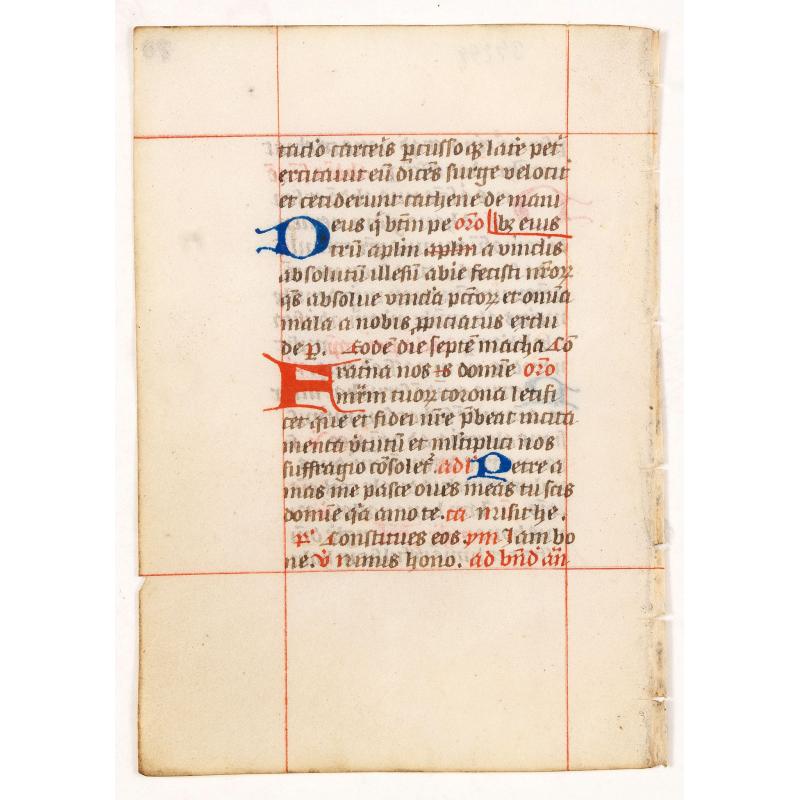 taclo carceis percussoqz late pet
excitauit eū dicēs surge velocit
et ceciderunt cathene de mani
Deus q̇ btm̄ pe orō bz eius
trū aplm̄ aplm̄ a vinclis
absolutū illesū abie fecisti nr̄oꝝ
qs̄ absolue vincla pctōꝝ et omīa
mala a nobis ꝓpiciatus exclu
de p. Eodē die septē macha Cō
Fratna nos ts domīe orō
mr̄m tuoꝝ corona letifi
cet que et fidei nr̄e p̄beat incita
menta v̓tutū et ml̓tiplici nos
suffragio cōsolet᷑. ad i Petre a
mas me pasce oues meas tu scis
domīe q̇a amo te. ca nusit he.
p̄ Constitues eos. ym Iam bo
ne. v̓ nimis hono. ad bn̄d an̄